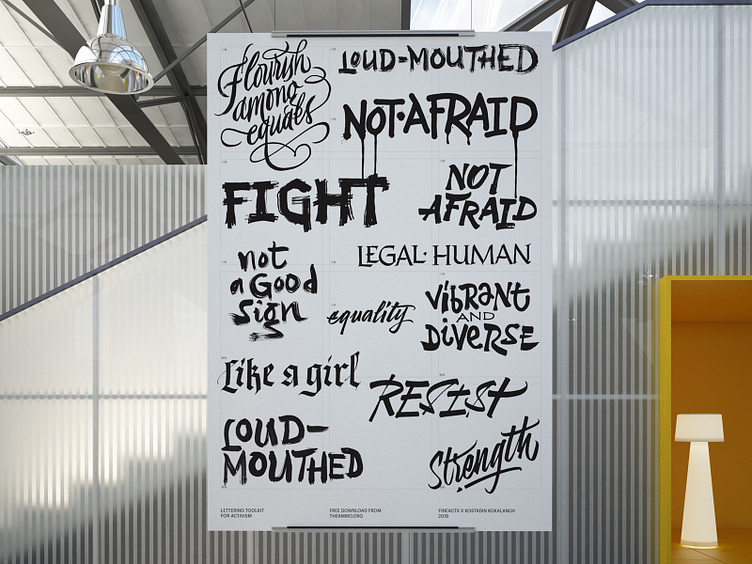 Flourish
among
equals
LOUD-MOUTHED
NOT·AFRAID
FIGHT
NOT
AFRAID
not
a Good
sign
LEGAL·HUMAN
equality
vibrant
AND
DiVERSE
Like a girl
RESIST
LOUD-
MOUTHED
Strength
LETTERING TOOLKIT
FOR ACTIVISM
FREE DOWNLOAD FROM
THEAMMO.ORG
FINEACTS X KOSTADIN KOKALANOV
2019